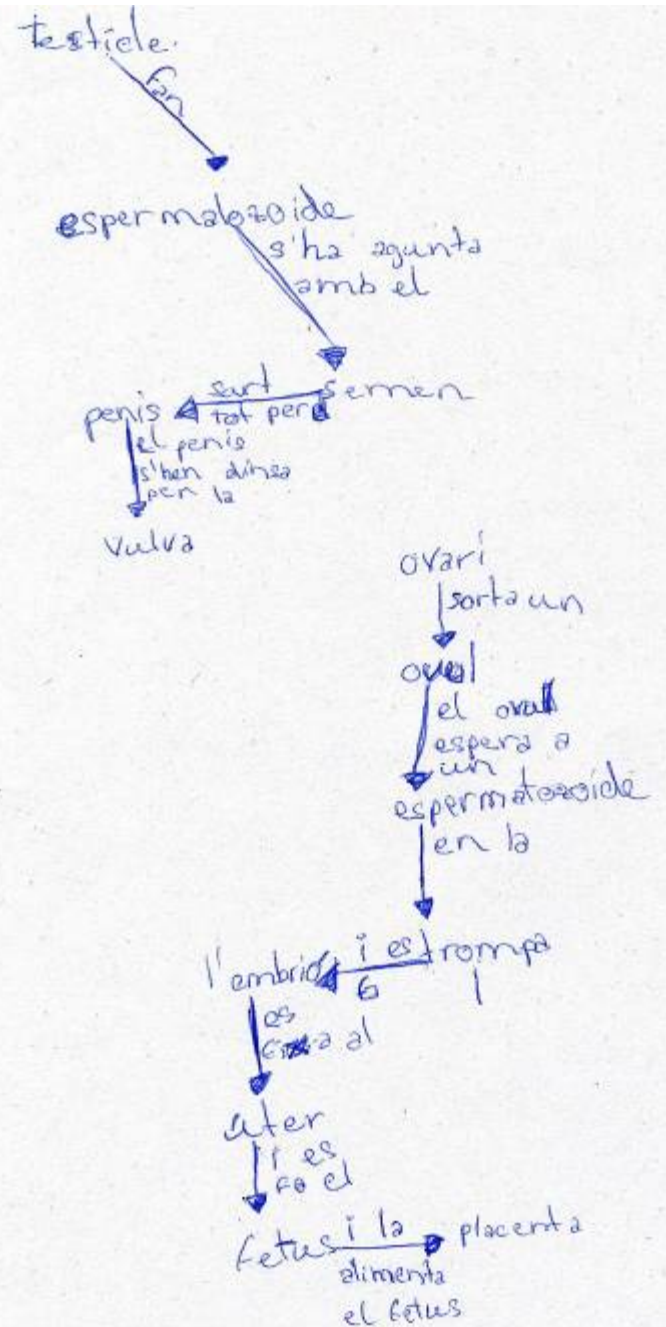 testicle.
fan
espermatozoide
s'ha agunta
amb el
semen
surt
tot per
penis
el penis
s'hen dinsa
per la
vulva
ovari
sorta un
oval
el oval
espera a
un
espermatozoide
en la
trompa
i es
fa
l'embrió
es
al
uter
i es
fa el
fetus
i la
alimenta
el fetus
placenta